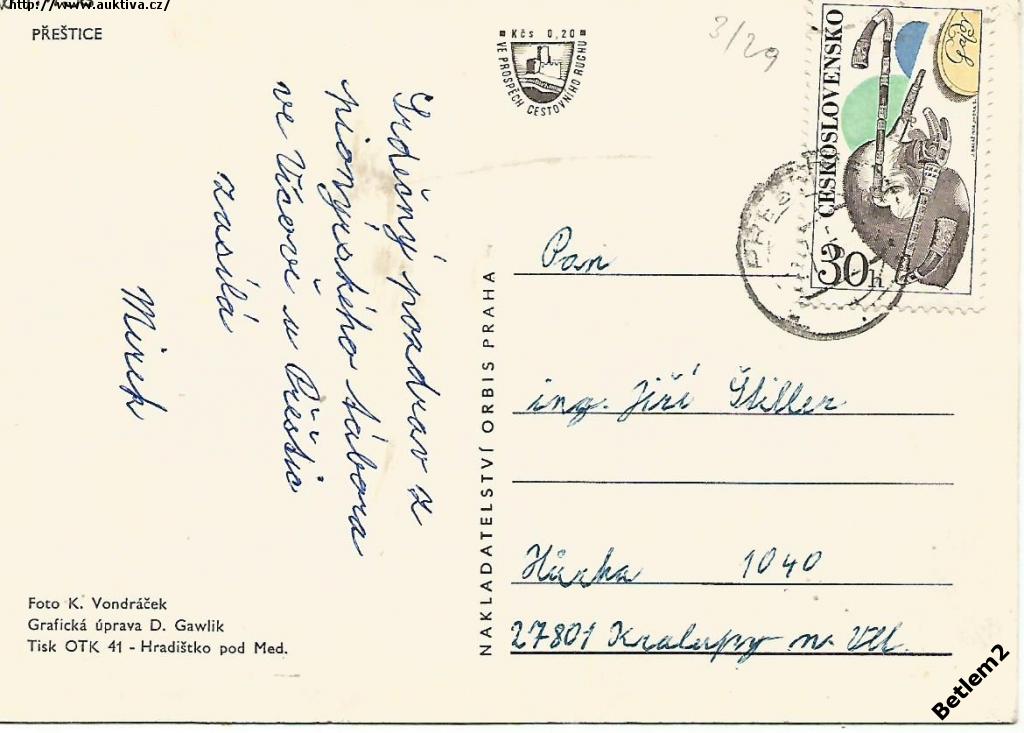 http://www.auktiva.cz/
PŘEŠTICE
Kčs 0,20
VE PROSPĚCH CESTOVNÍHO RUCHU
3/29
ČESKOSLOVENSKO
30h
Srdečný pozdrav z
pionýrského tábora
ve Vícově u Přeštic
zasílá
Mirek
Pan
ing. Jiří Štiller
Hůrka 1040
27801 Kralupy n. Vlt.
NAKLADATELSTVÍ ORBIS PRAHA
Foto K. Vondráček
Grafická úprava D. Gawlik
Tisk OTK 41 - Hradištko pod Med.
Betlem2